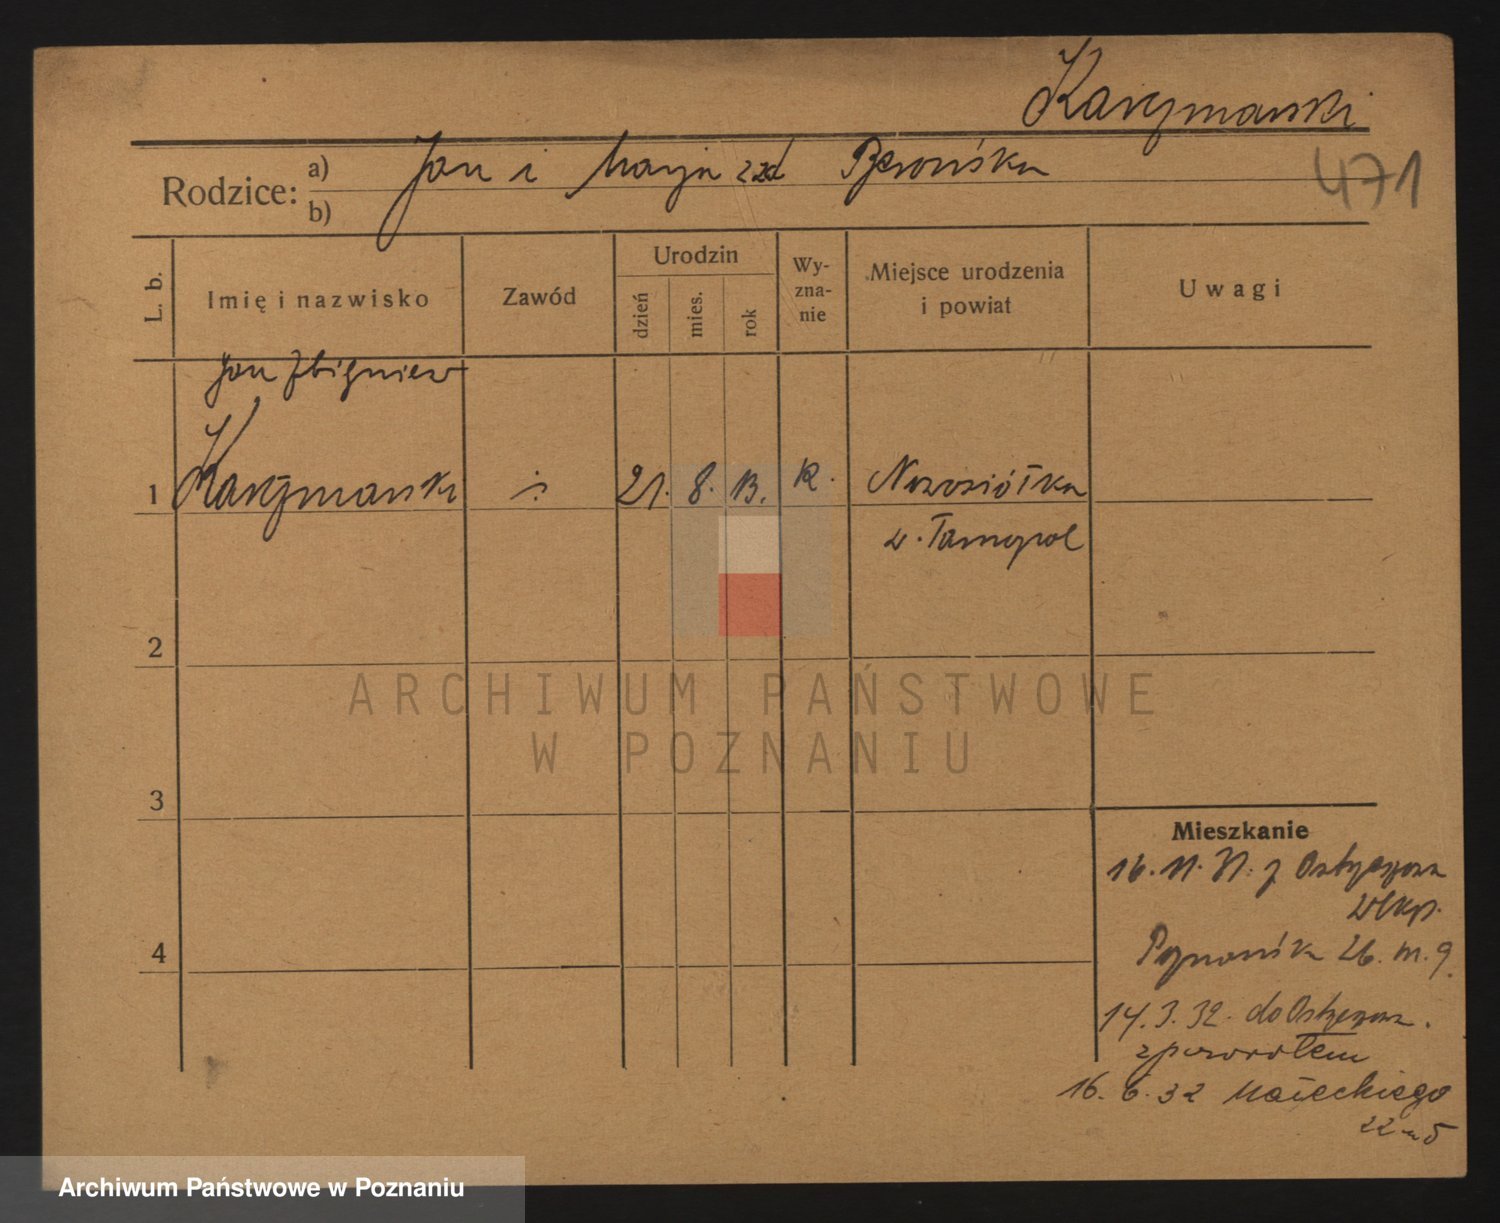 Karczmarski
Rodzice: a) Jan i Marja zd
b)
471
L. b.
Imię i nazwisko
Zawód
Urodzin
dzień
mies.
rok
Wy-
zna-
nie
Miejsce urodzenia
i powiat
Uwagi
Jan Zbigniew
1 Karczmarski 21. 8. 13. R. Nowosiółka
w. Tarnopol
2
3
4
Mieszkanie
16. 11. 31. z Ostrzeszowa
Wlkp.
Poznańska 26. m. 9.
14. 3. 32. do Ostrzeszowa.
z powrotem
16. 6. 32 Małeckiego
22 m 5
ARCHIWUM PAŃSTWOWE
W POZNANIU
Archiwum Państwowe w Poznaniu